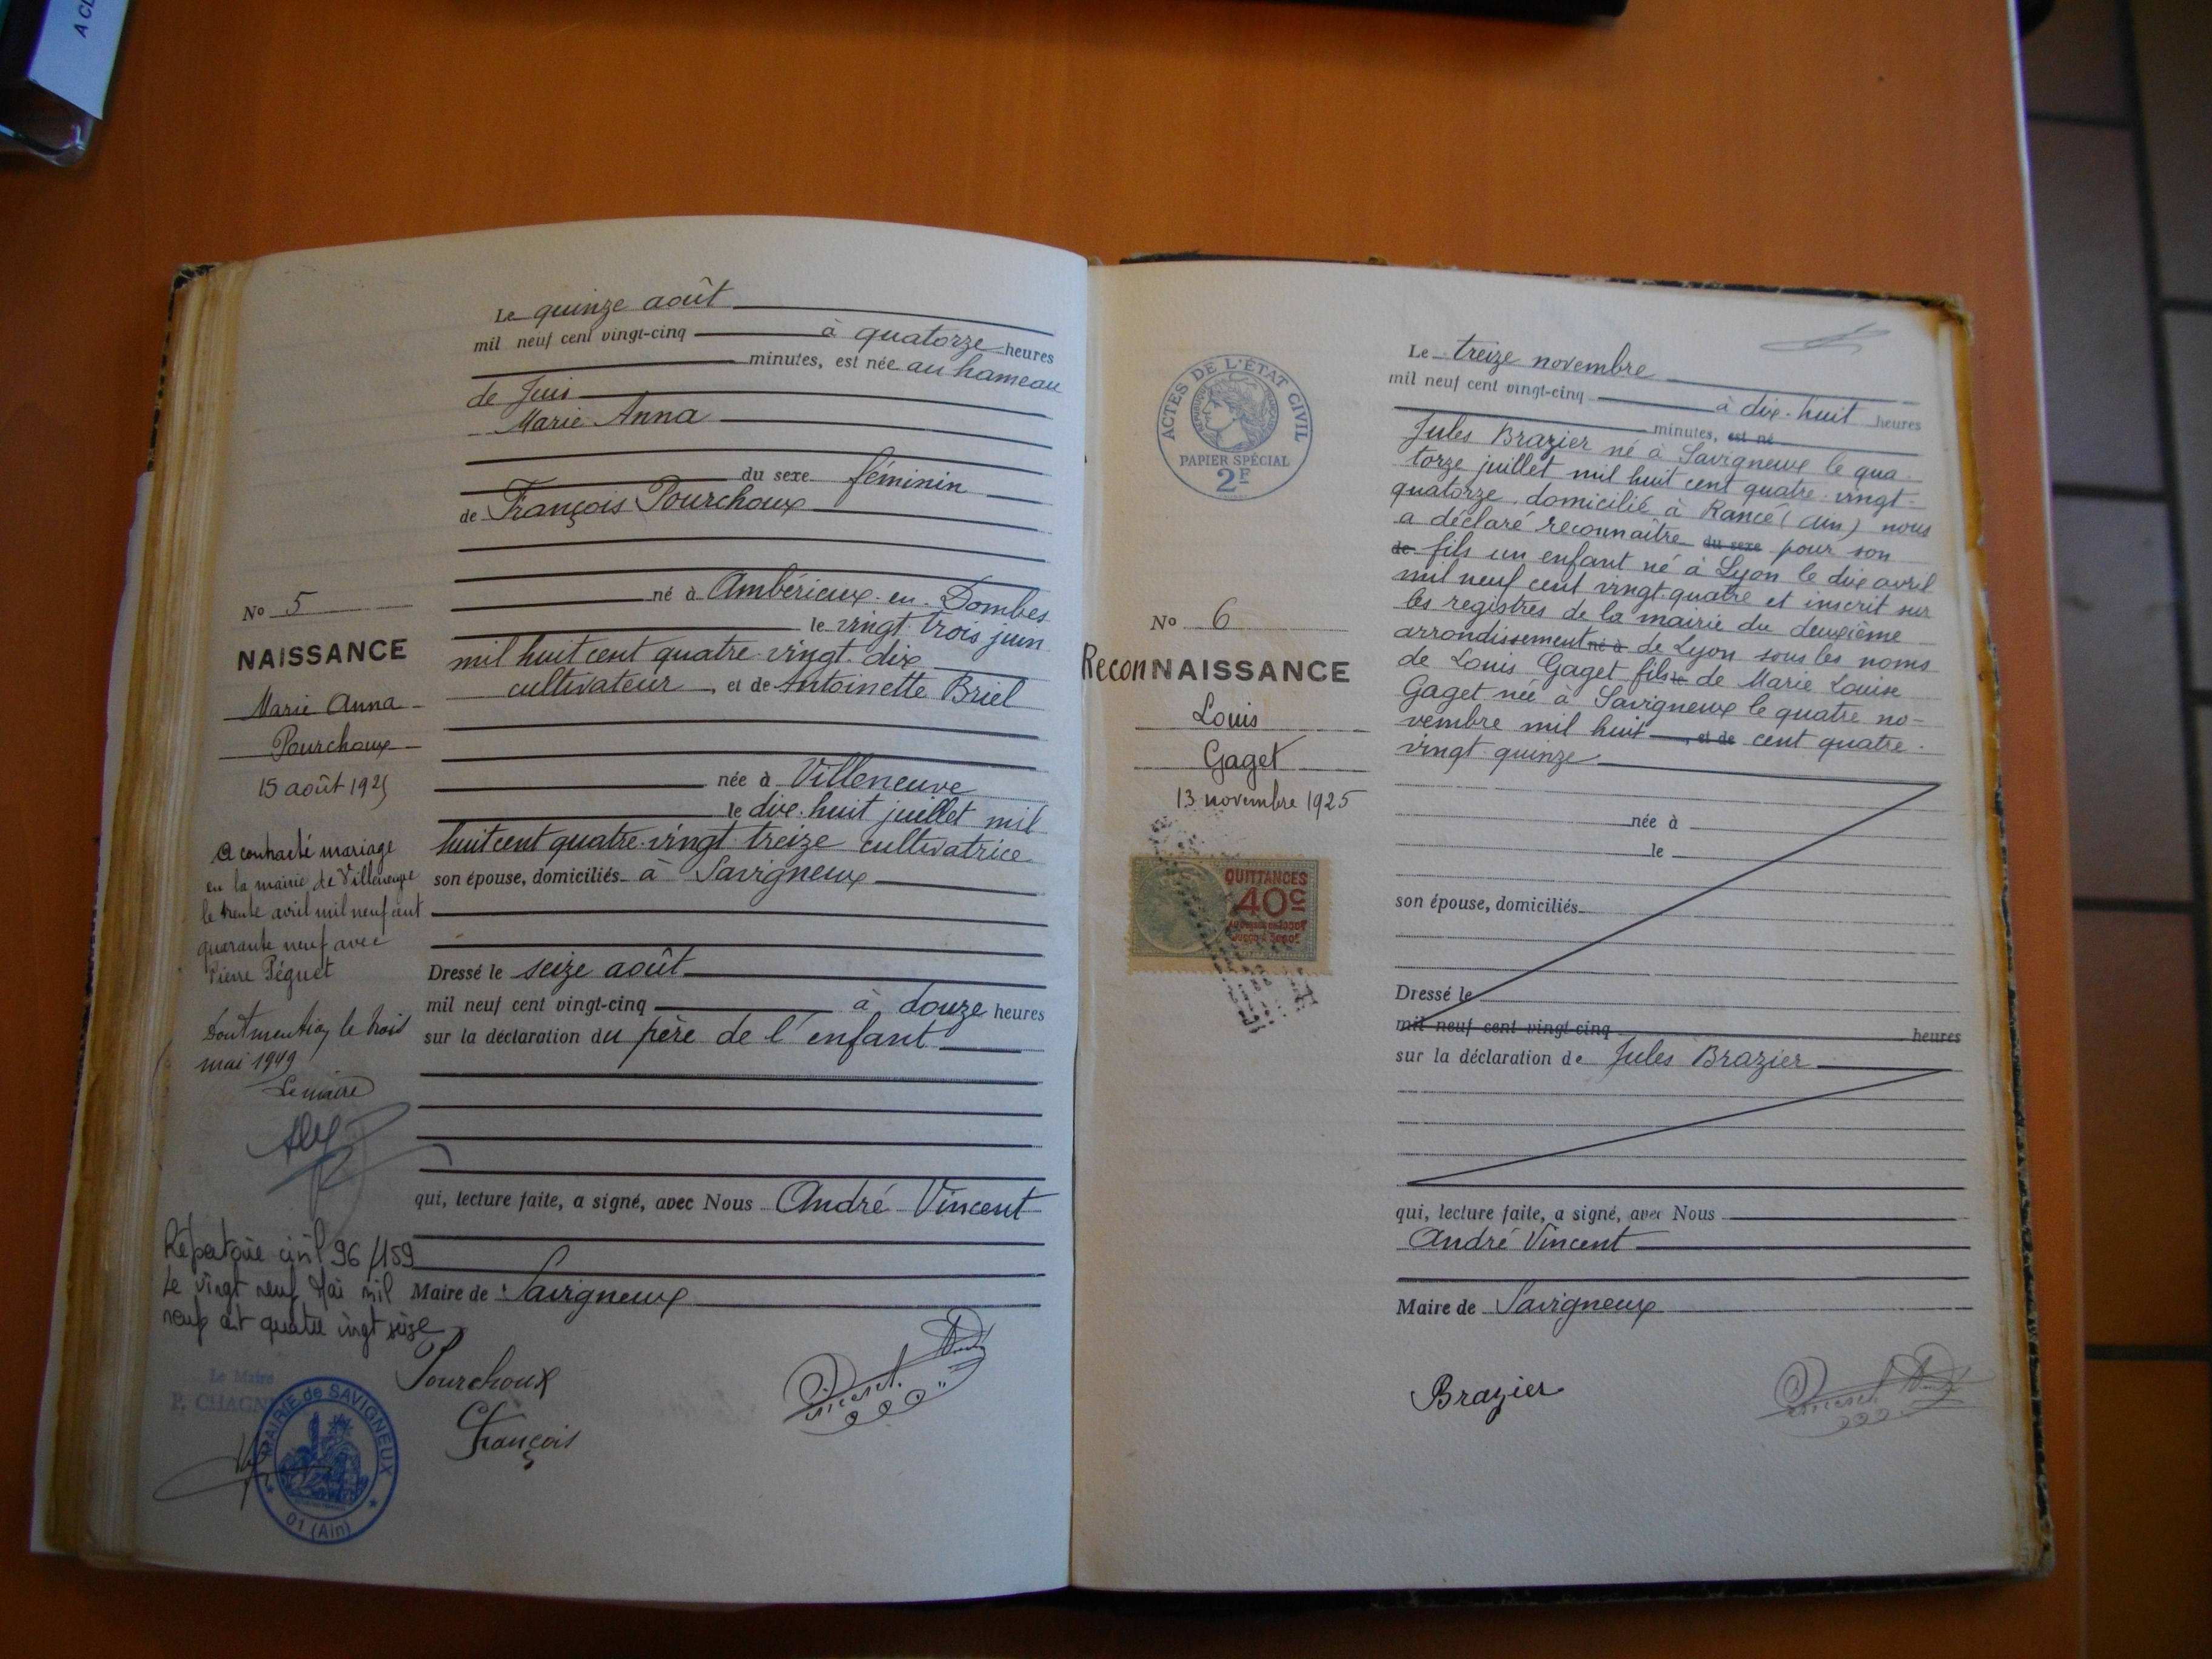 A CD
Le quinze août
mil neuf cent vingt-cinq à quatorze heures
minutes, est née au hameau
de Juis
Marie Anna
du sexe féminin
de François Pourchoux
né à Ambérieux-en-Dombes
le vingt-trois juin
mil huit cent quatre-vingt-dix
cultivateur, et de Antoinette Briel
née à Villeneuve
le dix-huit juillet mil
huit cent quatre-vingt treize cultivatrice
son épouse, domiciliés à Savigneux
Dressé le seize août
mil neuf cent vingt-cinq à douze heures
sur la déclaration du père de l'enfant
qui, lecture faite, a signé, avec Nous André Vincent
Maire de Savigneux
Pourchoux
François
No 5
NAISSANCE
Marie Anna
Pourchoux
15 août 1925
A contracté mariage
en la mairie de Villeneuve
le trente avril mil neuf cent
quarante neuf avec
Pierre Péguet
Dont mention le trois
mai 1949
Le maire
Répertoire civil 96/159
Le vingt neuf Mai mil
neuf cent quatre vingt seize
Le Maire
P. CHAGN
MAIRIE de SAVIGNEUX
01 (Ain)
ACTES DE L'ÉTAT CIVIL
PAPIER SPÉCIAL
2F
No 6
ReconNAISSANCE
Louis
Gaget
13 novembre 1925
QUITTANCES
40c
Le treize novembre
mil neuf cent vingt-cinq à dix-huit heures
minutes, est né
Jules Brazier né à Savigneux le qua-
torze juillet mil huit cent quatre-vingt-
quatorze, domicilié à Rancé (Ain) nous
a déclaré reconnaître du sexe pour son
de fils un enfant né à Lyon le dix avril
mil neuf cent vingt-quatre et inscrit sur
les registres de la mairie du deuxième
arrondissement né à de Lyon sous les noms
de Louis Gaget fils le de Marie Louise
Gaget née à Savigneux le quatre no-
vembre mil huit, et de cent quatre-
vingt-quinze
née à
le
son épouse, domiciliés
Dressé le
mil neuf cent vingt-cinq heures
sur la déclaration de Jules Brazier
qui, lecture faite, a signé, avec Nous
André Vincent
Maire de Savigneux
Brazier